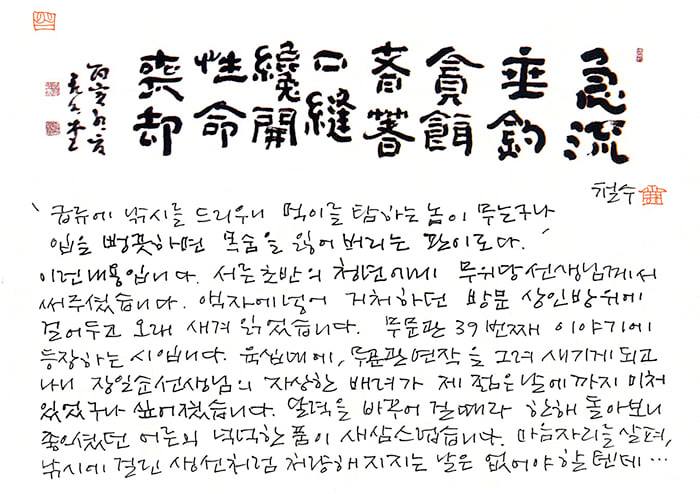 急流
垂釣
貪餌
者著
口縫
纔開
性命
喪却
철수
‘급류에 낚시를 드리우니 먹이를 탐하는 놈이 무는구나
입을 뻥끗하면 목숨을 잃어버리는 판이로다.’
이런내용입니다. 서른초반의 청년에게 무위당선생님께서
써주셨습니다. 액자에넣어 거처하던 방문 상인방위에
걸어두고 오래 새겨 읽었습니다. 무문관 39번째 이야기에
등장하는 시입니다. 육십대에, 무문관연작을 그려 새기게 되고
나니 장일순선생님의 자상한 배려가 제 젊은날에까지 미쳐
있었구나 싶어졌습니다. 달력을 바꾸어 걸때라 한해 돌아보니
좋으셨던 어른의 넉넉한 품이 새삼스럽습니다. 마음자리를 살펴,
낚시에 걸린 생선처럼 처량해지지는 날은 없어야 할텐데…